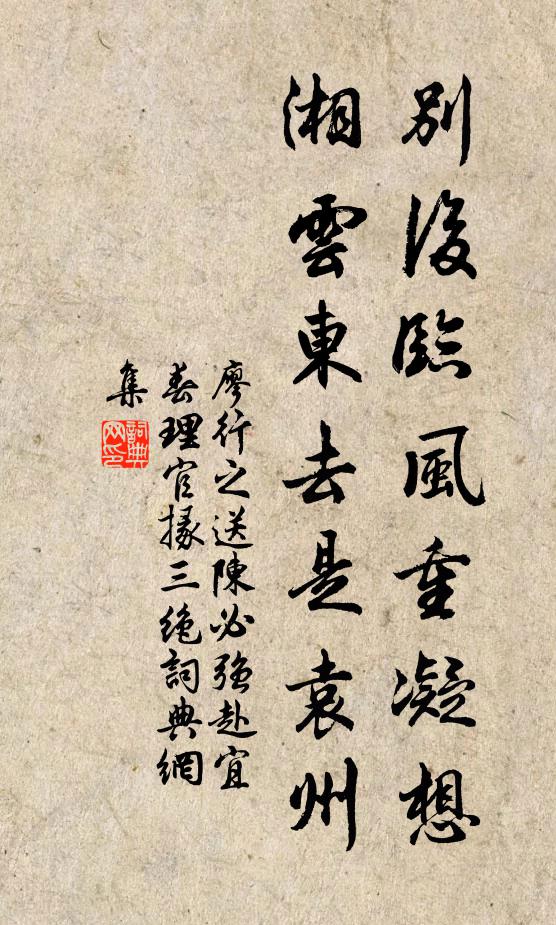 別後臨風重凝想
湘雲東去是袁州
廖行之送陳必強赴宜
春理官掾三絶詞典網
集
詞典
网印